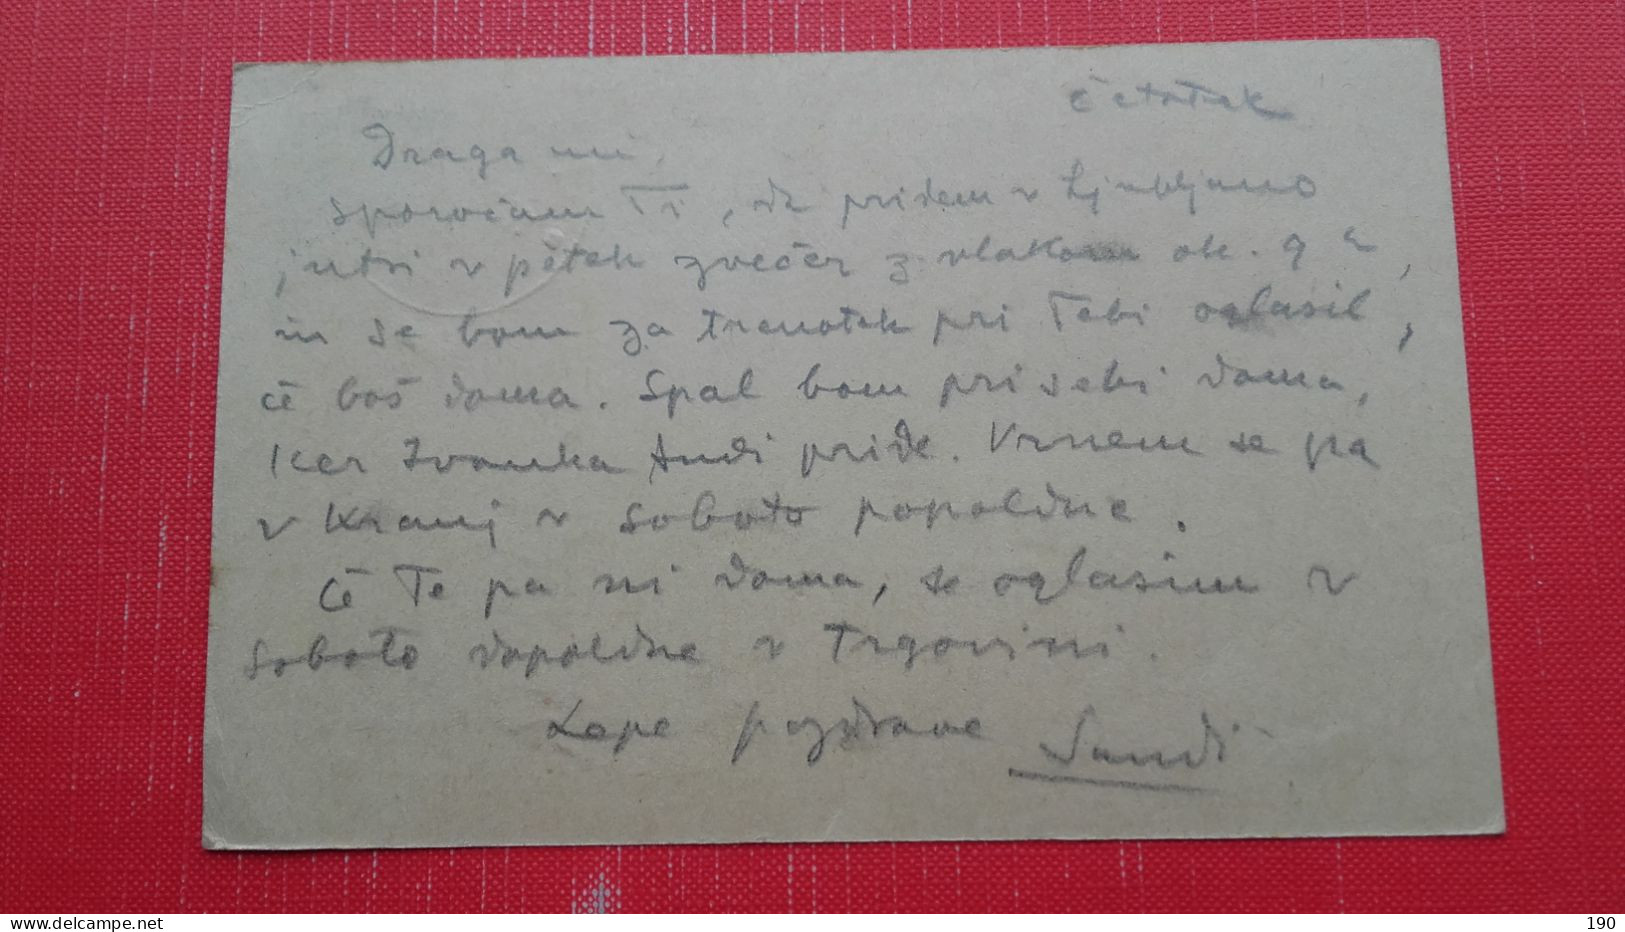 četrtek
Draga mi,
sporočam Ti, da pridem v Ljubljano
jutri v petek zvečer z vlakom ok. 9 h,
in se bom za trenotek pri Tebi oglasil,
če boš doma. Spal bom pri sebi doma,
ker Ivanka tudi pride. Vrnem se pa
v Kranj v soboto popoldne.
Če Te pa ni doma, se oglasim v
soboto dopoldne v trgovini.
Lepe pozdrave Sandi
delcampe.net
190